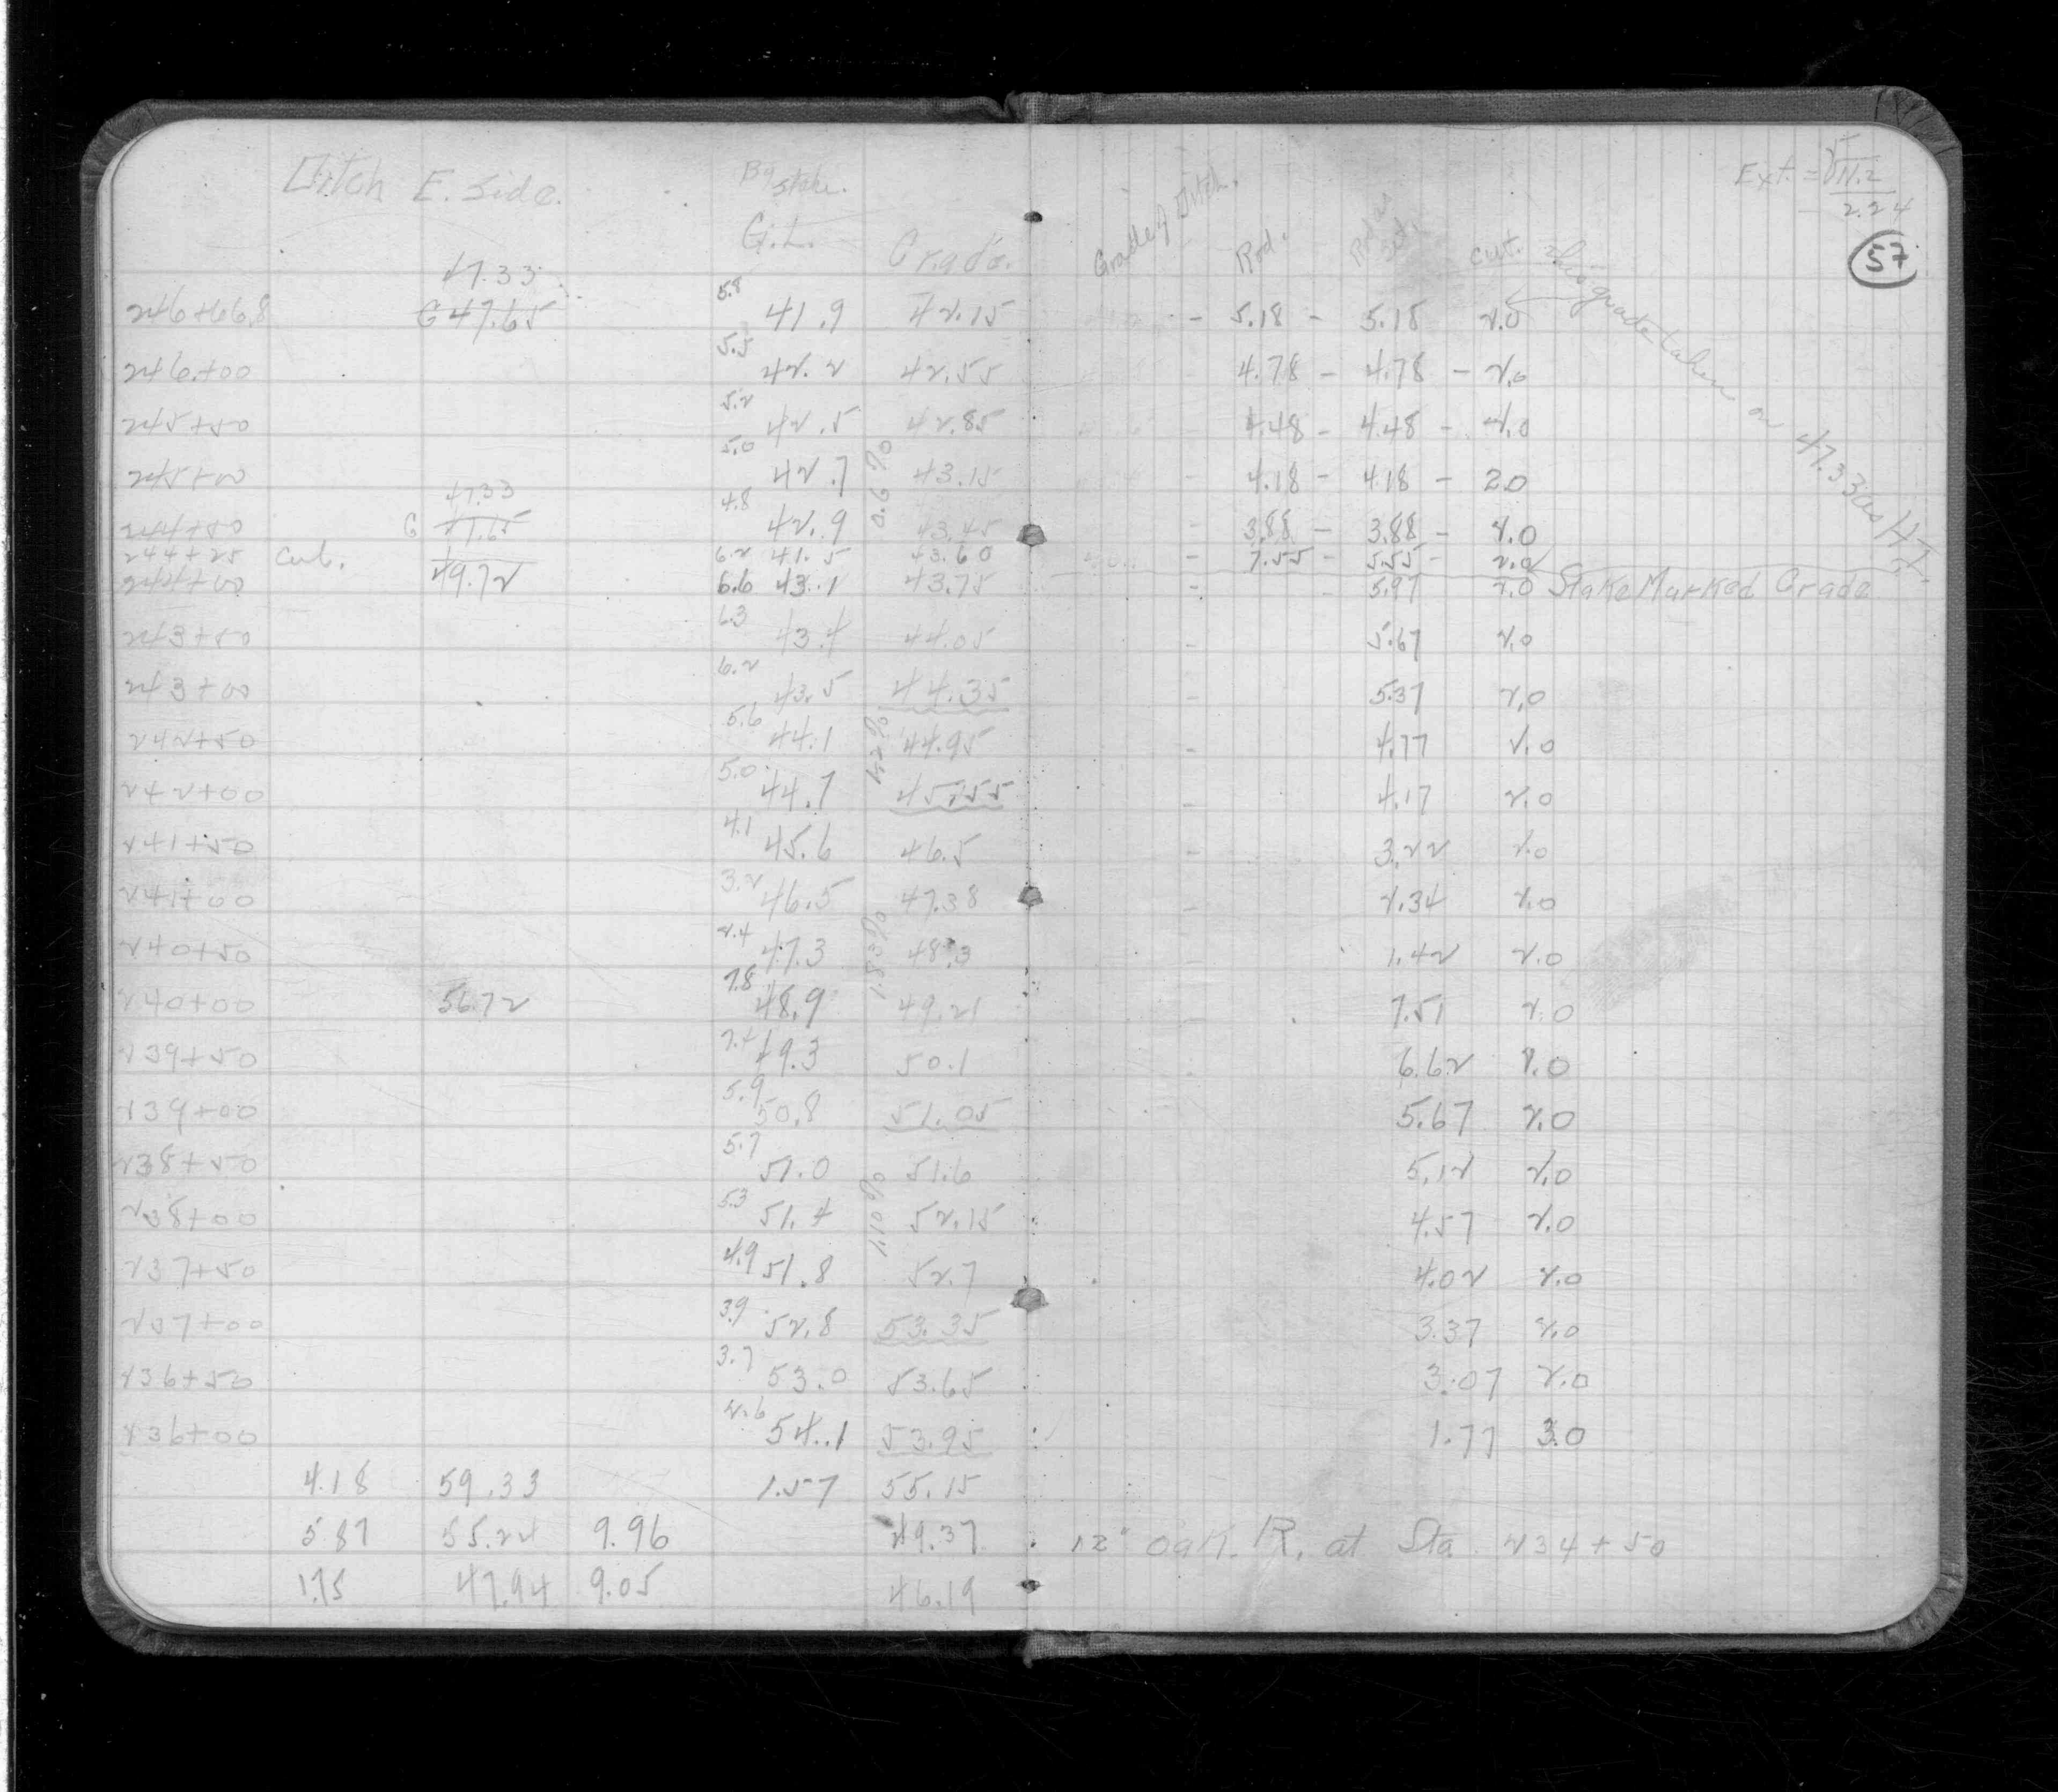 Ditch E. Side. By stake. G.L. Grade. Grade of Ditch. Rod. Rod as set. cut.
Ext. = 11.2 / 2.24
57
This grade taken on 47.33 as H.I.
47.33
246+66.8 G 47.65 5.8 41.9 42.15 - 5.18 - 5.18 2.0
246+00 5.5 42.2 42.55 - 4.78 - 4.78 - 2.0
245+50 5.2 42.5 42.85 4.48 - 4.48 - 2.0
245+00 5.0 42.7 0.6% 43.15 - 4.18 - 4.18 - 2.0
47.33
244+50 G 47.65 4.8 42.9 43.45 - 3.88 - 3.88 - 2.0
244+25 Cul. 6.2 41.5 43.60 - 7.55 - 5.55 - 2.0
244+00 49.72 6.6 43.1 43.75 - 5.97 2.0 Stake Marked Grade
243+50 6.3 43.4 44.05 - 5.67 2.0
243+00 6.2 43.5 44.35 - 5.37 2.0
242+50 5.6 44.1 1.2% 44.95 - 4.77 2.0
242+00 5.0 44.7 45.55 - 4.17 2.0
241+50 4.1 45.6 46.5 - 3.22 2.0
241+00 3.2 46.5 47.38 - 2.34 2.0
240+50 2.4 47.3 1.83% 48.3 - 1.42 2.0
240+00 56.72 7.8 48.9 49.21 - 7.51 2.0
239+50 7.4 49.3 50.1 - 6.62 2.0
239+00 5.9 50.8 51.05 5.67 2.0
238+50 5.7 51.0 51.6 5.12 2.0
238+00 5.3 51.4 1.10% 52.15 4.57 2.0
237+50 4.9 51.8 52.7 4.02 2.0
237+00 3.9 52.8 53.35 3.37 2.0
236+50 3.7 53.0 53.65 3.07 2.0
236+00 2.6 54.1 53.95 1.77 3.0
4.18 59.33 1.57 55.15
5.87 55.24 9.96 49.37 12" Oak R. at Sta 234+50
1.75 47.94 9.05 46.19